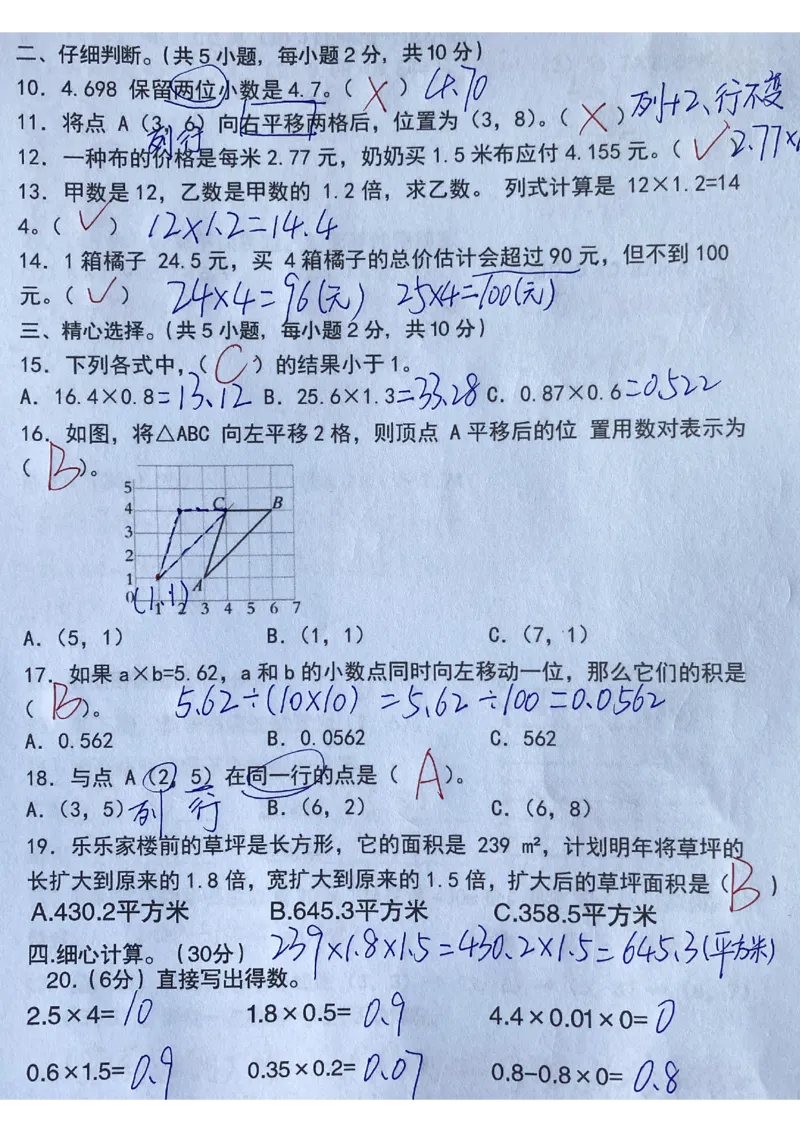 二、仔细判断。(共5小题，每小题2分，共10分)
10. 4.698 保留两位小数是 4.7。( × ) 4.70
11. 将点 A（3，6）向右平移两格后，位置为（3，8）。( × ) 列+2、行不变
列 行
12. 一种布的价格是每米 2.77 元，奶奶买 1.5 米布应付 4.155 元。( √ 2.77×
13. 甲数是 12，乙数是甲数的 1.2 倍，求乙数。 列式计算是 12×1.2=14
4。( √ ) 12×1.2=14.4
14. 1 箱橘子 24.5 元，买 4 箱橘子的总价估计会超过 90 元，但不到 100
元。( √ ) 24×4=96(元) 25×4=100(元)
三、精心选择。(共5小题，每小题2分，共10分)
15. 下列各式中，( C ) 的结果小于 1。
A. 16.4×0.8=13.12 B. 25.6×1.3=33.28 C. 0.87×0.6=0.522
16. 如图，将△ABC 向左平移 2 格，则顶点 A 平移后的位 置用数对表示为
( B )。
5
4 C B
3
2
1 A
0 (1,1) 1 2 3 4 5 6 7
A.（5，1） B.（1，1） C.（7，1）
17. 如果 a×b=5.62，a 和 b 的小数点同时向左移动一位，那么它们的积是
( B )。 5.62÷(10×10) =5.62÷100=0.0562
A. 0.562 B. 0.0562 C. 562
18. 与点 A（2，5）在同一行的点是 ( A )。
A.（3，5） 列 行 B.（6，2） C.（6，8）
19. 乐乐家楼前的草坪是长方形，它的面积是 239 m²，计划明年将草坪的
长扩大到原来的 1.8 倍，宽扩大到原来的 1.5 倍，扩大后的草坪面积是 ( B )
A.430.2平方米 B.645.3平方米 C.358.5平方米
四.细心计算。（30分） 239×1.8×1.5=430.2×1.5=645.3(平方米)
20.（6分）直接写出得数。
2.5×4=10 1.8×0.5=0.9 4.4×0.01×0=0
0.6×1.5=0.9 0.35×0.2=0.07 0.8-0.8×0=0.8